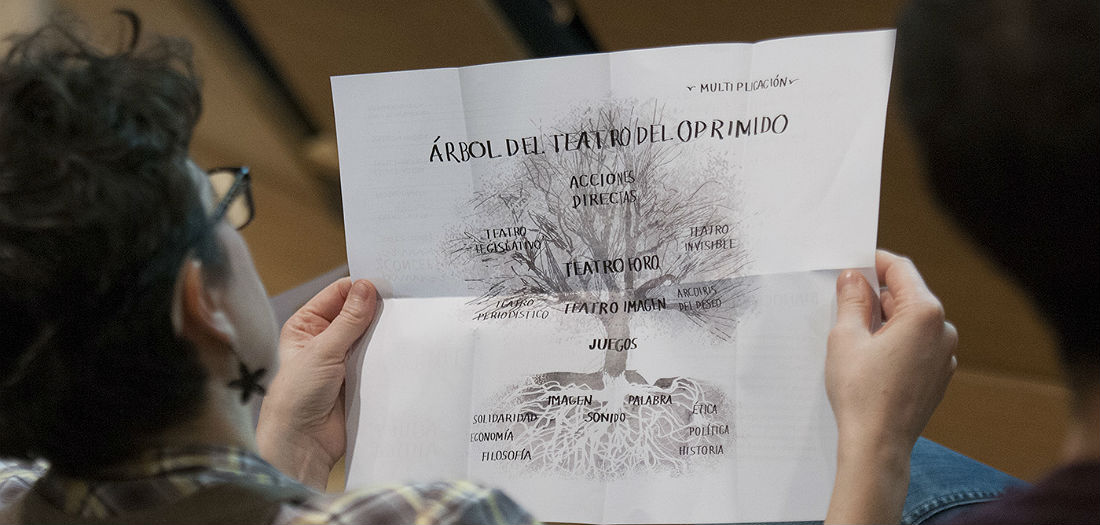 MULTIPLICACIÓN
ÁRBOL DEL TEATRO DEL OPRIMIDO
ACCIONES
DIRECTAS
TEATRO
LEGISLATIVO
TEATRO
INVISIBLE
TEATRO FORO
TEATRO
PERIODÍSTICO
TEATRO IMAGEN
ARCOIRIS
DEL DESEO
JUEGOS
IMAGEN PALABRA
SONIDO
SOLIDARIDAD
ECONOMÍA
FILOSOFÍA
ÉTICA
POLÍTICA
HISTORIA